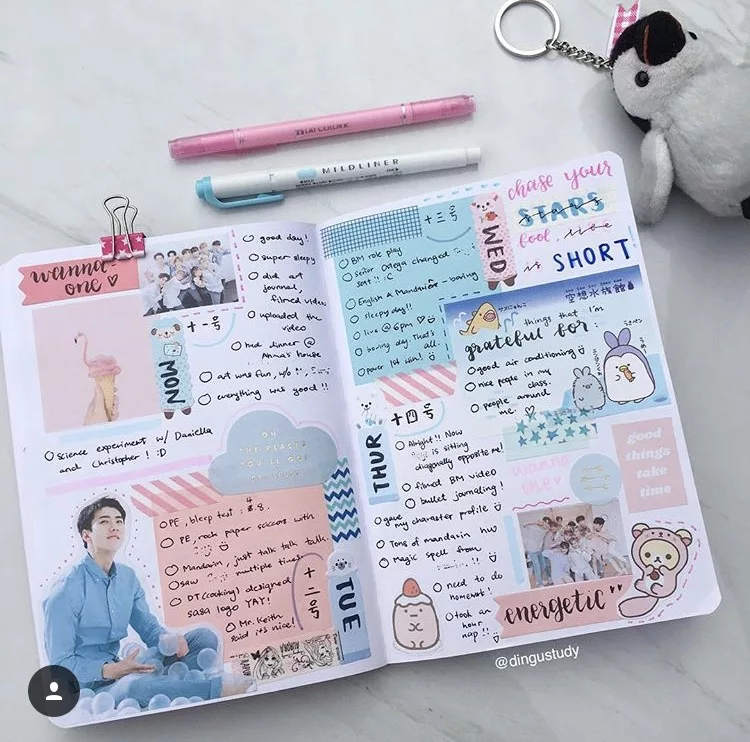 MILDLINER
wanna-
one ♡
good day!
super sleepy
did art
journal,
filmed video
uploaded the
video
had dinner @
Ahma's house
art was fun, w/
everything was good!!
十一号
MON
science experiment w/ Daniella
and Christopher! :D
OH
THE PLACES
YOU'LL GO!
PE, bleep test : 4.8.
PE, rock paper scissors with
Mandarin, just talk talk talk.
saw multiple times
DT (cooking) designed
sasa logo YAY!
Mr. Keith
said it's nice!
十二号
TUE
BM role play
Señor Ortega changed
seat :C
English & Mandarin - boring
sleepy day!!
live @ 6pm ♡
boring day. That's
all.
power 1st win!
十三号
WED
chase your
STARS
fool, life
is SHORT
空想水族館
things that I'm
grateful for:
good air conditioning
nice people in my
class.
people around
me. ♡
THUR
十四号
Alright!! Now
is sitting
diagonally opposite me!
filmed BM video
bullet journaling!
gave
my character profile
Tons of mandarin hw
magic spell from
need to do
homework!
took an
hour
nap!!
wanna
one ♡
good
things
take
time
energetic
@dingustudy